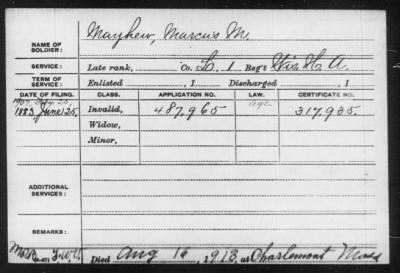 NAME OF SOLDIER: Mayhew, Marcus M.
SERVICE: Late rank, Co. L. 1 Reg't Wis H. A.
TERM OF SERVICE: Enlisted , 1 Discharged , 1
DATE OF FILING. CLASS. APPLICATION NO. LAW. CERTIFICATE NO.
1907,
1883, June 25, Invalid, 487.965 age 317.935.
Widow,
Minor,
ADDITIONAL SERVICES:
REMARKS:
Died Aug 16, 1918, at Charlemont Mass